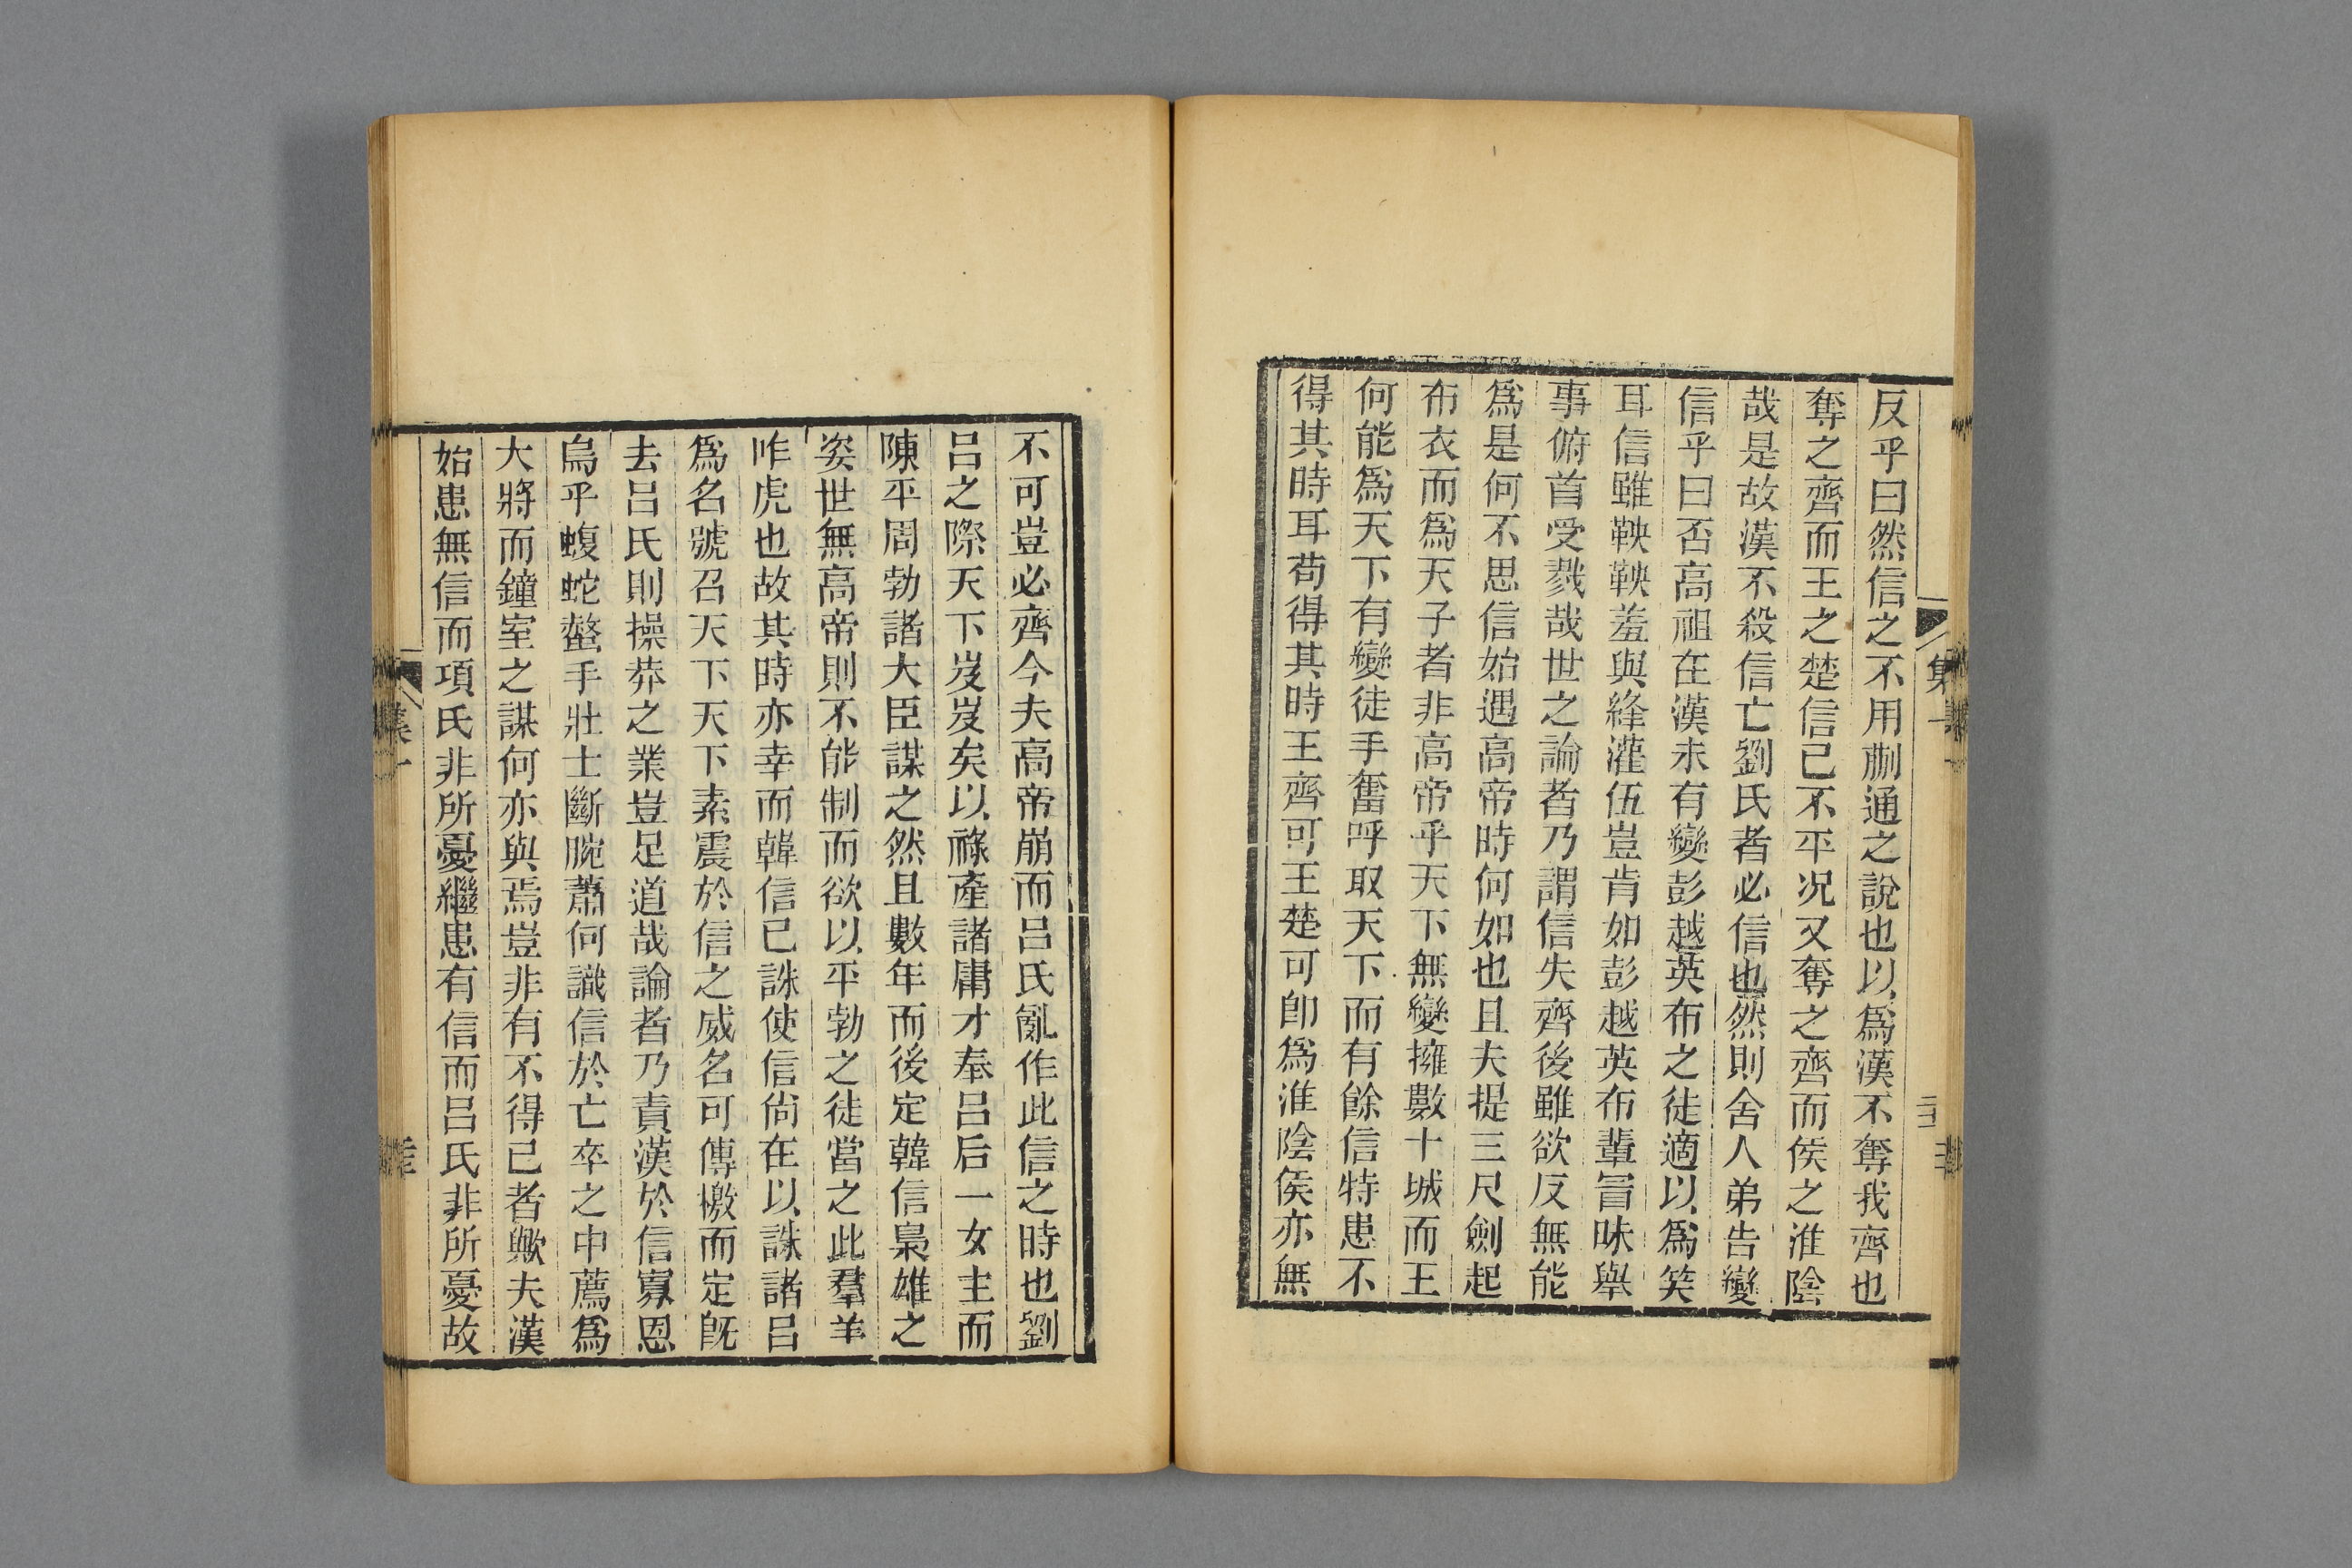 反乎曰然信之不用蒯通之說也以爲漢不奪我齊也
奪之齊而王之楚信已不平况又奪之齊而侯之淮陰
哉是故漢不殺信亡劉氏者必信也然則舍人弟告變
信乎曰否高祖在漢未有變彭越英布之徒適以爲笑
耳信雖鞅鞅羞與絳灌伍豈肯如彭越英布輩冒昧舉
事俯首受戮哉世之論者乃謂信失齊後雖欲反無能
爲是何不思信始遇高帝時何如也且夫提三尺劍起
布衣而爲天子者非高帝乎天下無變擁數十城而王
何能爲天下有變徒手奮呼取天下而有餘信特患不
得其時耳苟得其時王齊可王楚可卽爲淮陰侯亦無
不可豈必齊今夫高帝崩而呂氏亂作此信之時也劉
呂之際天下岌岌矣以祿產諸庸才奉呂后一女主而
陳平周勃諸大臣謀之然且數年而後定韓信梟雄之
姿世無高帝則不能制而欲以平勃之徒當之此羣羊
咋虎也故其時亦幸而韓信已誅使信尙在以誅諸呂
爲名號召天下天下素震於信之威名可傳檄而定旣
去呂氏則操莽之業豈足道哉論者乃責漢於信寡恩
烏乎蝮蛇螫手壯士斷腕蕭何識信於亡卒之中薦爲
大將而鐘室之謀何亦與焉豈非有不得已者歟夫漢
始患無信而項氏非所憂繼患有信而呂氏非所憂故